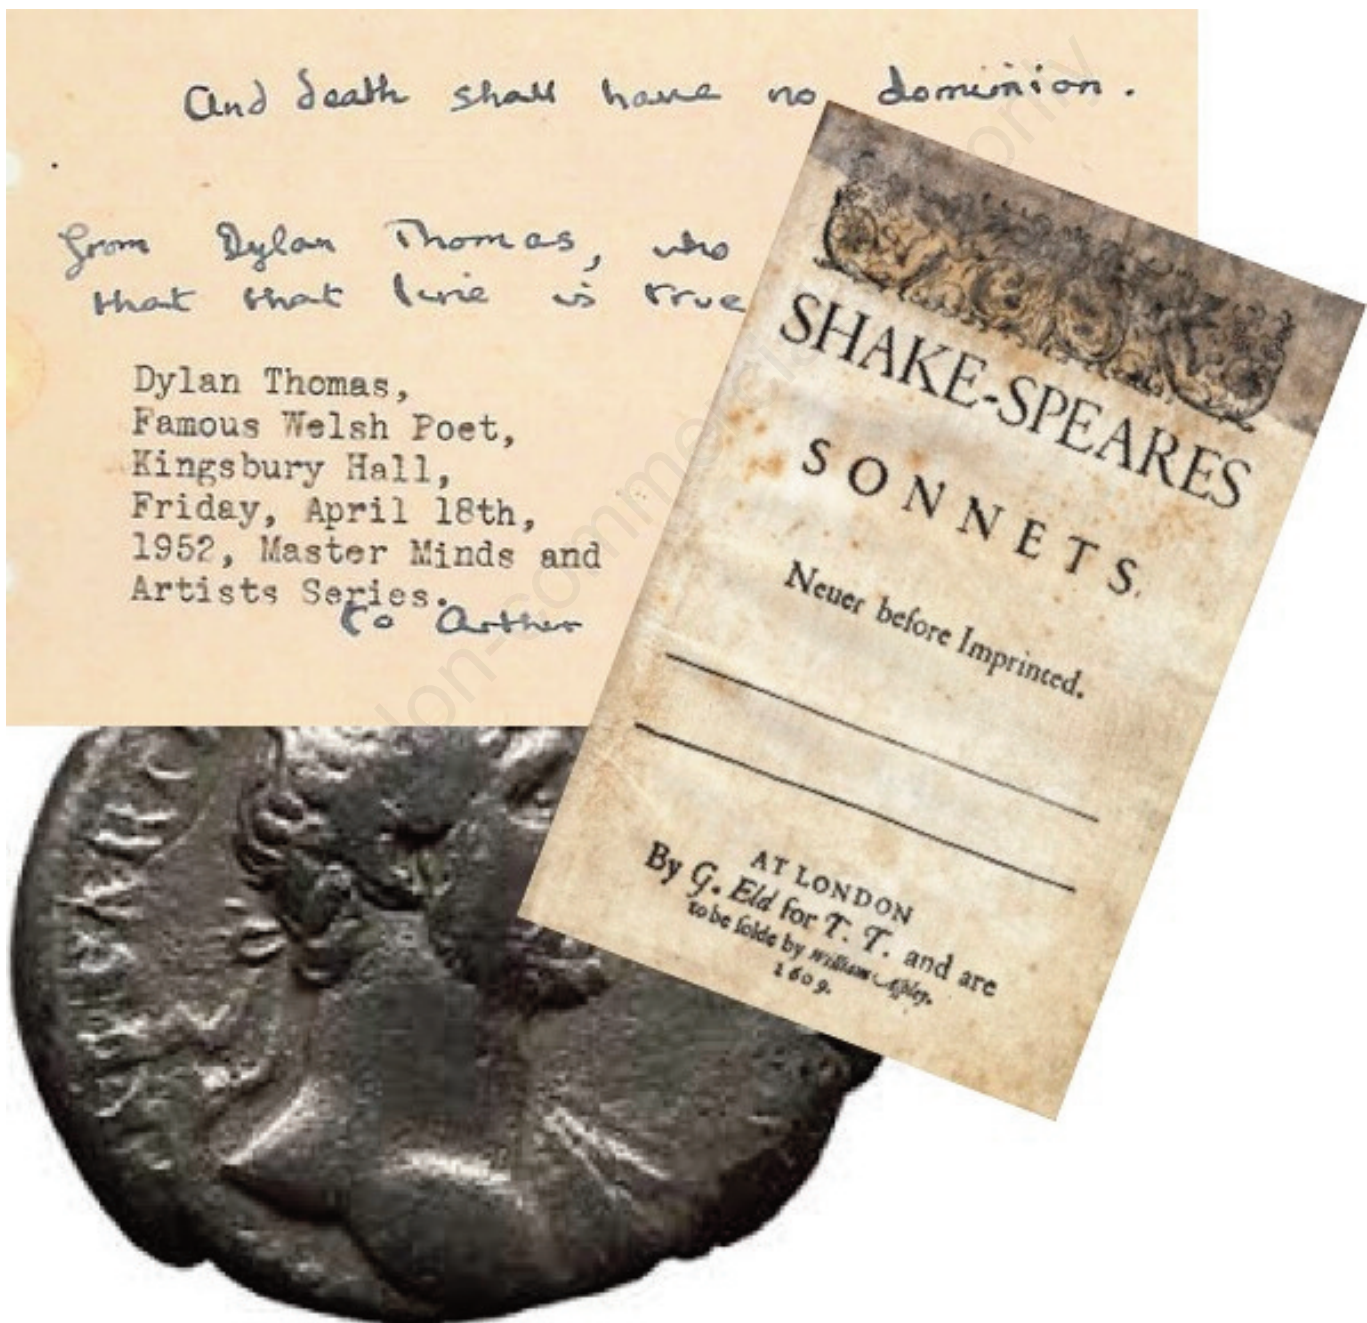 And death shall have no dominion.
from Dylan Thomas, who
that that line is true
Dylan Thomas,
Famous Welsh Poet,
Kingsbury Hall,
Friday, April 18th,
1952, Master Minds and
Artists Series.
to Arther
SHAKE-SPEARES
SONNETS.
Neuer before Imprinted.
AT LONDON
By G. Eld for T. T. and are
to be solde by William Aspley.
1609.